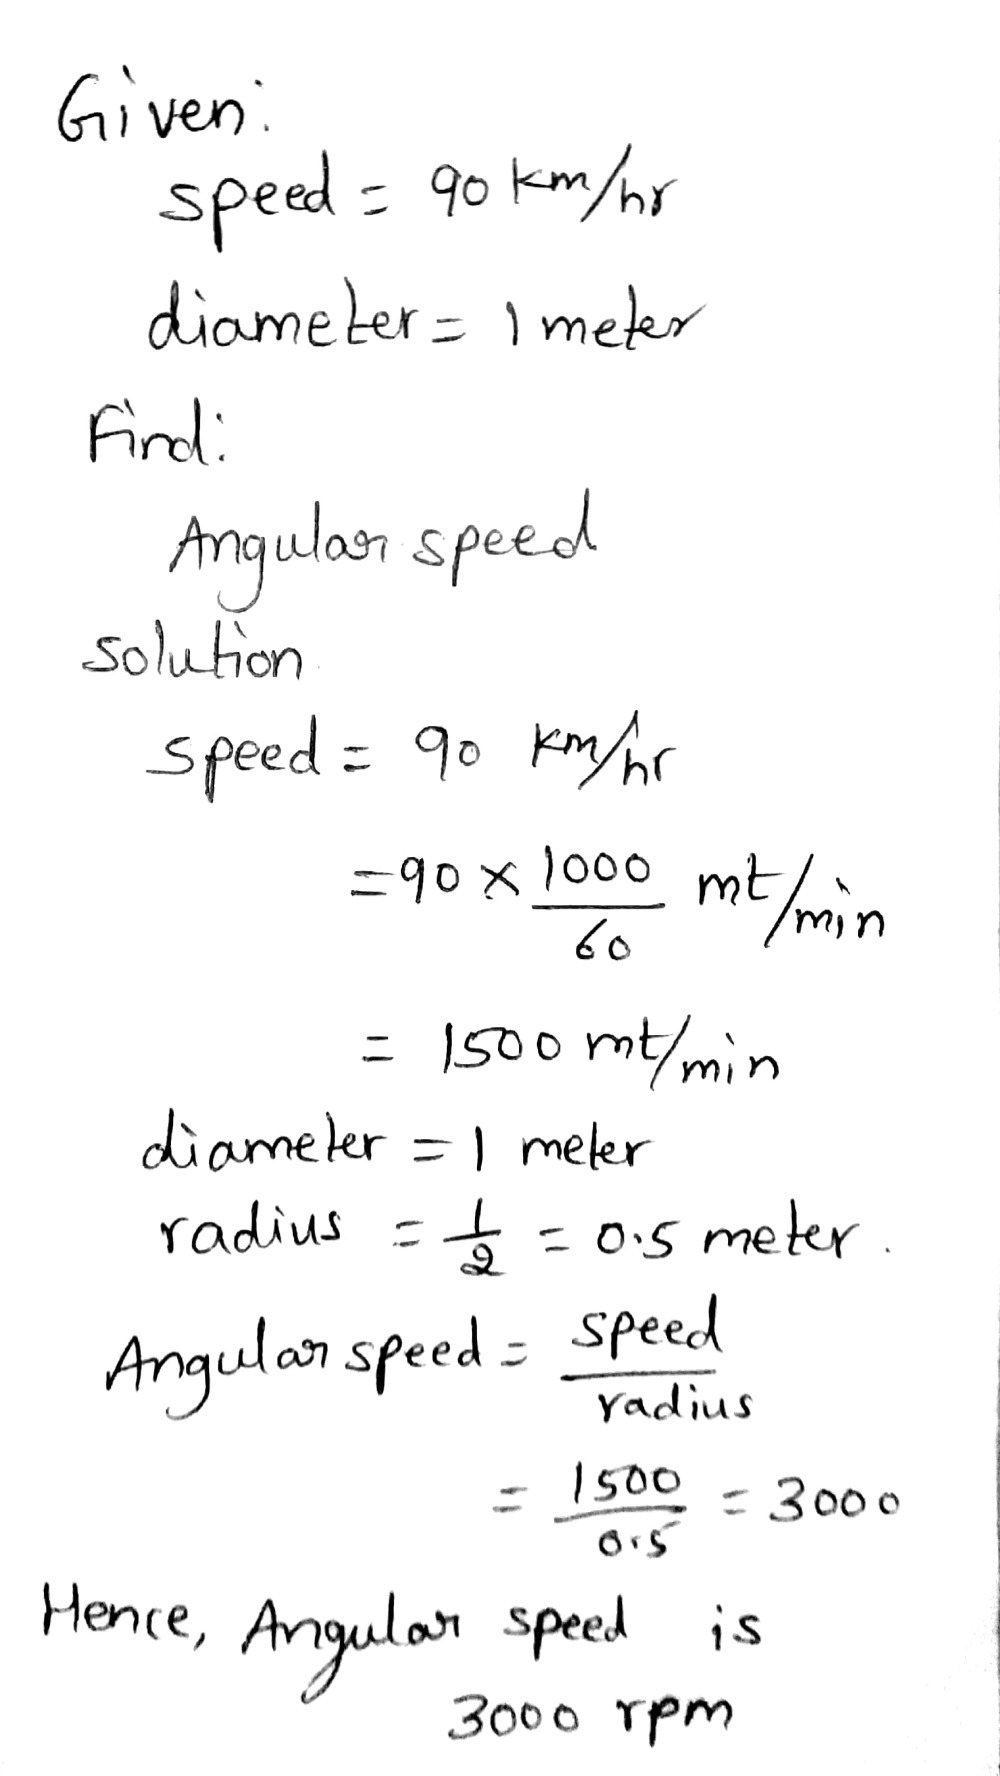 Given:
speed = 90 km/hr
diameter = 1 meter
Find:
Angular speed
solution
speed = 90 km/hr
= 90 × 1000/60 mt/min
= 1500 mt/min
diameter = 1 meter
radius = 1/2 = 0.5 meter.
Angular speed = speed/radius
= 1500/0.5 = 3000
Hence, Angular speed is
3000 rpm